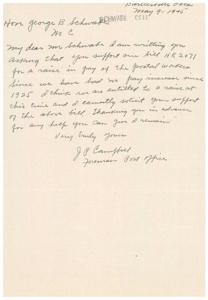 Bartlesville Okla
May 9. 1945
Hon George B. Schwabe
M C
My dear Mr Schwabe I am writing you
asking that you support our bill HR 2071
for a raise in pay of the postal workers
Since we have had no pay increase since
1925 I think we are entitled to a raise at
this time and I earnestly solicit your support
of the above bill thanking you in advance
for any help you can give I remain
Very truly yours
J P Campbell
Foreman Post office